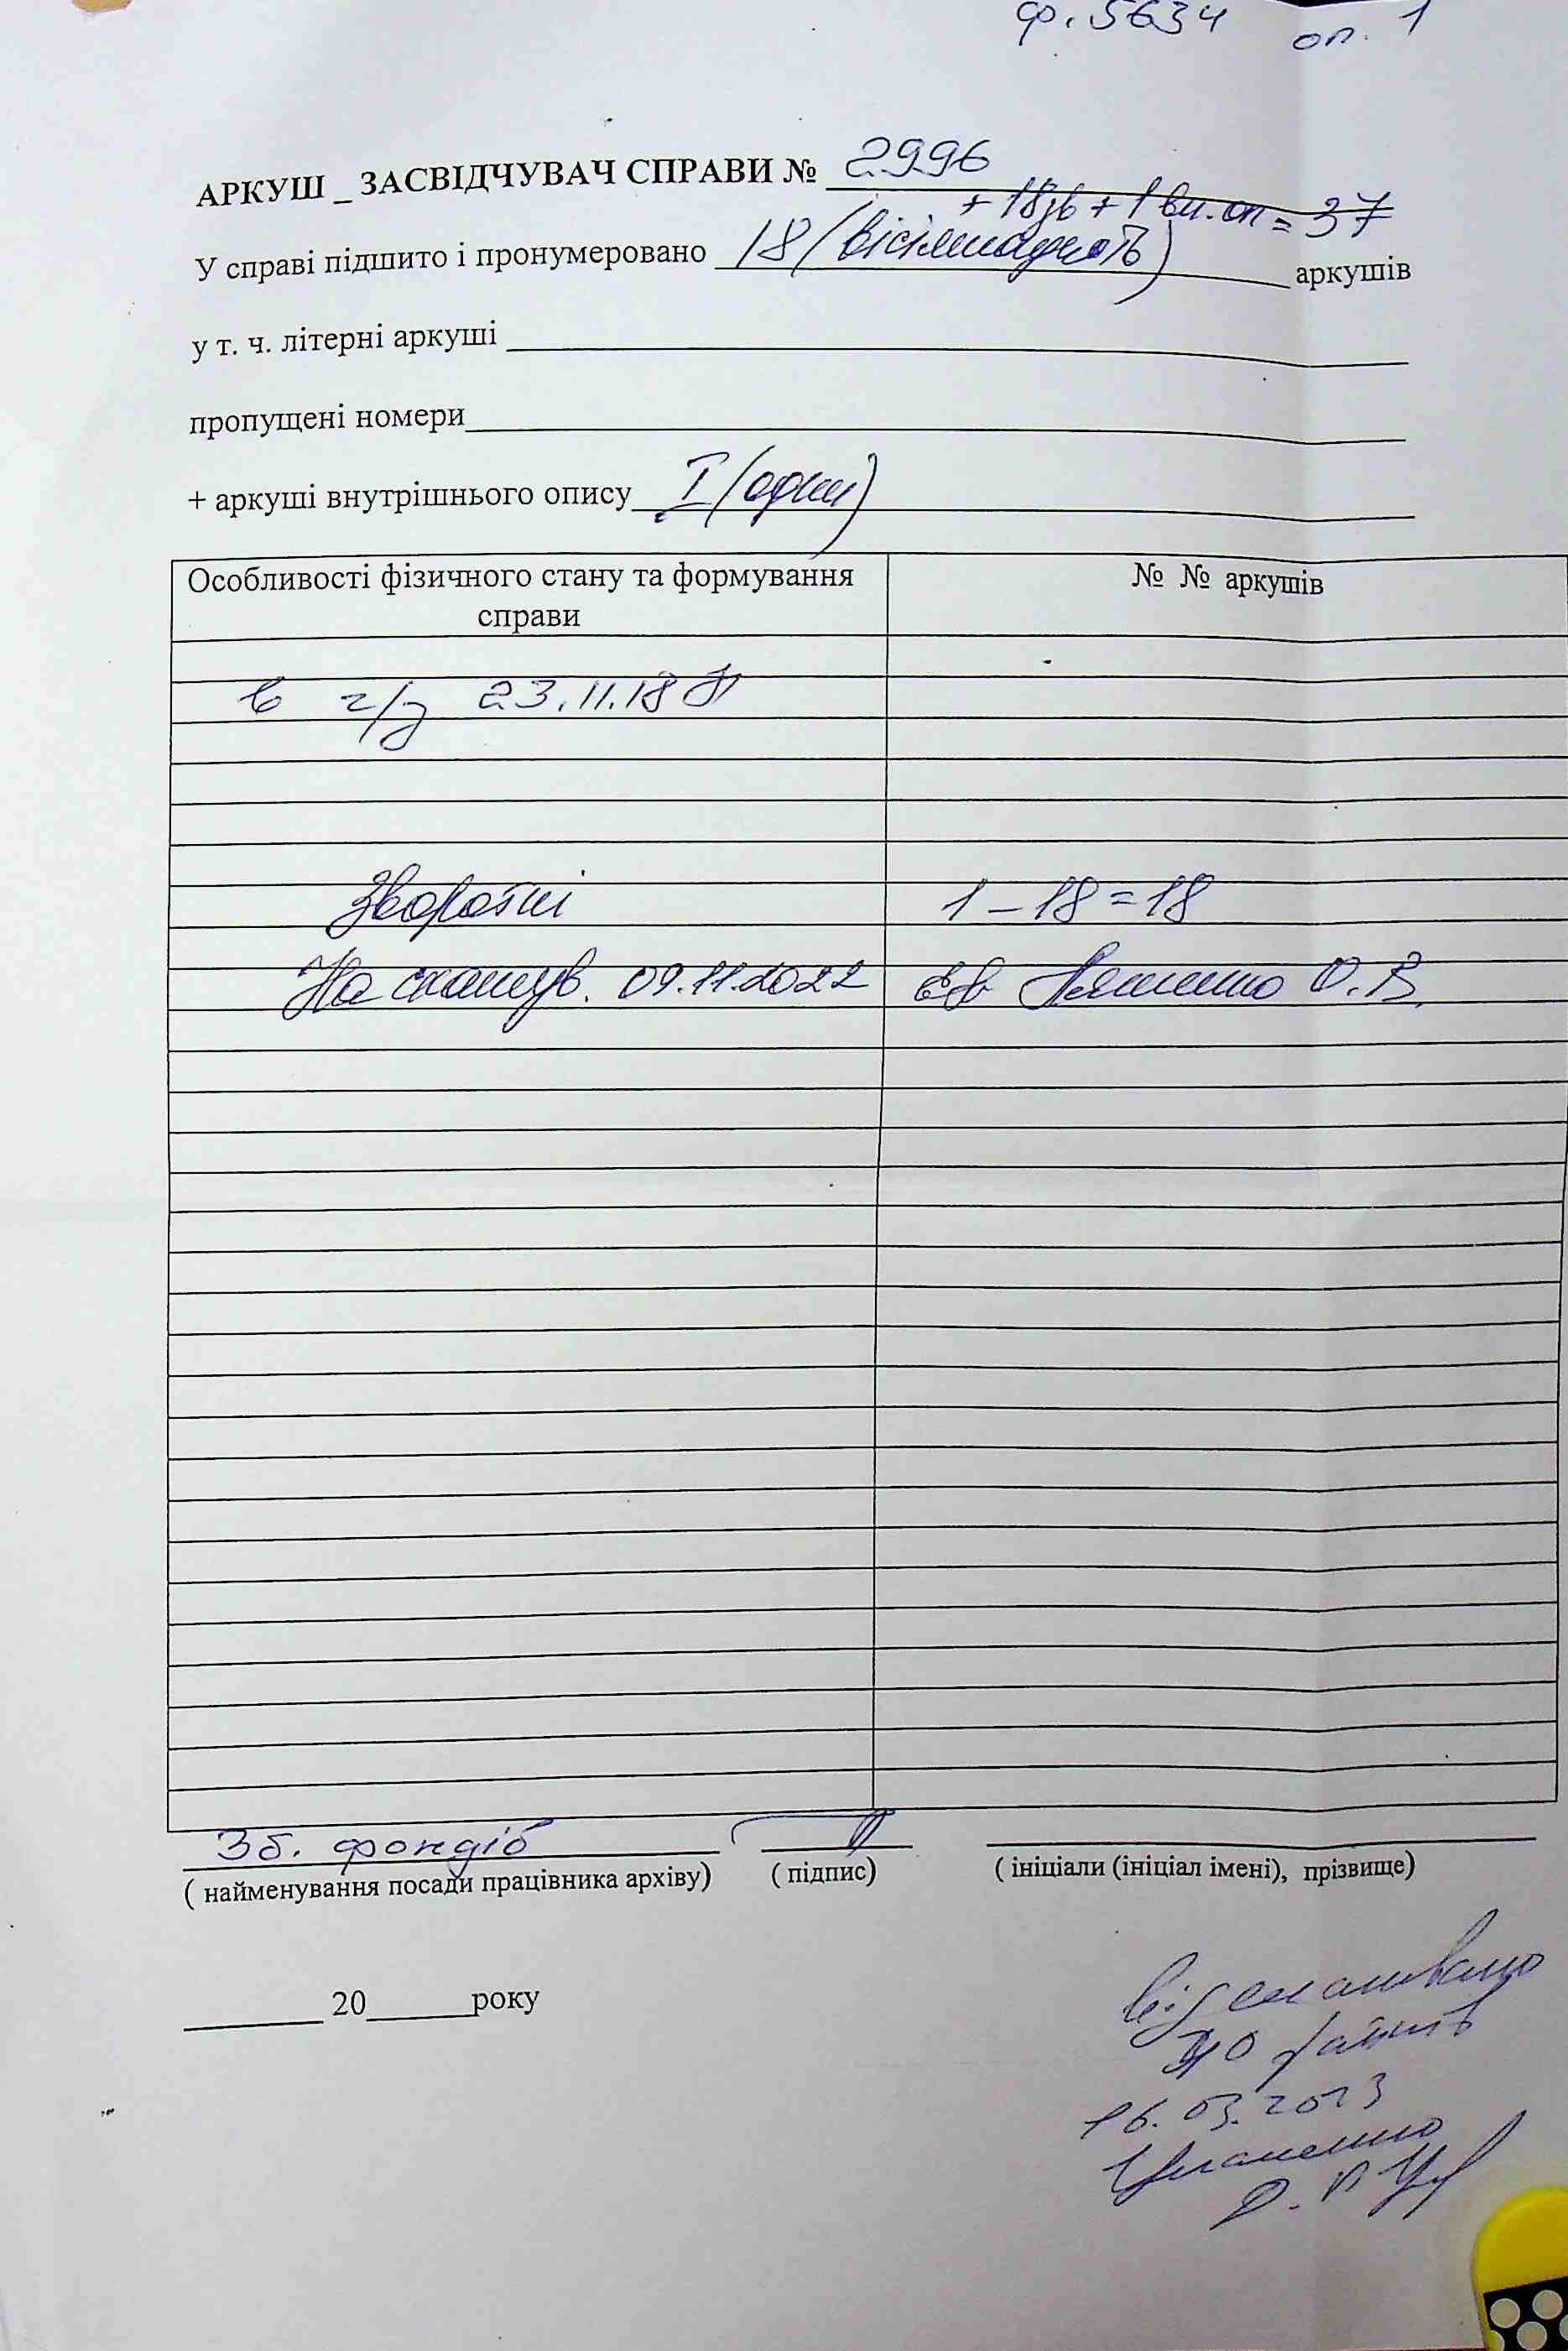 ф. 5634 оп. 1
АРКУШ _ ЗАСВІДЧУВАЧ СПРАВИ № 2996
+ 18зв + 1 вн. оп = 37
У справі підшито і пронумеровано 18 (вісімнадцять) аркушів
у т. ч. літерні аркуші
пропущені номери
+ аркуші внутрішнього опису I (один)
Особливості фізичного стану та формування справи № № аркушів
в г/д 23.11.18
Зворотні 1 – 18 = 18
На сканув. 09.11.2022 О.В.
Зб. фондів
( найменування посади працівника архіву) ( підпис) ( ініціали (ініціал імені), прізвище)
20 року
Відскановано
файлів
16.03.2023